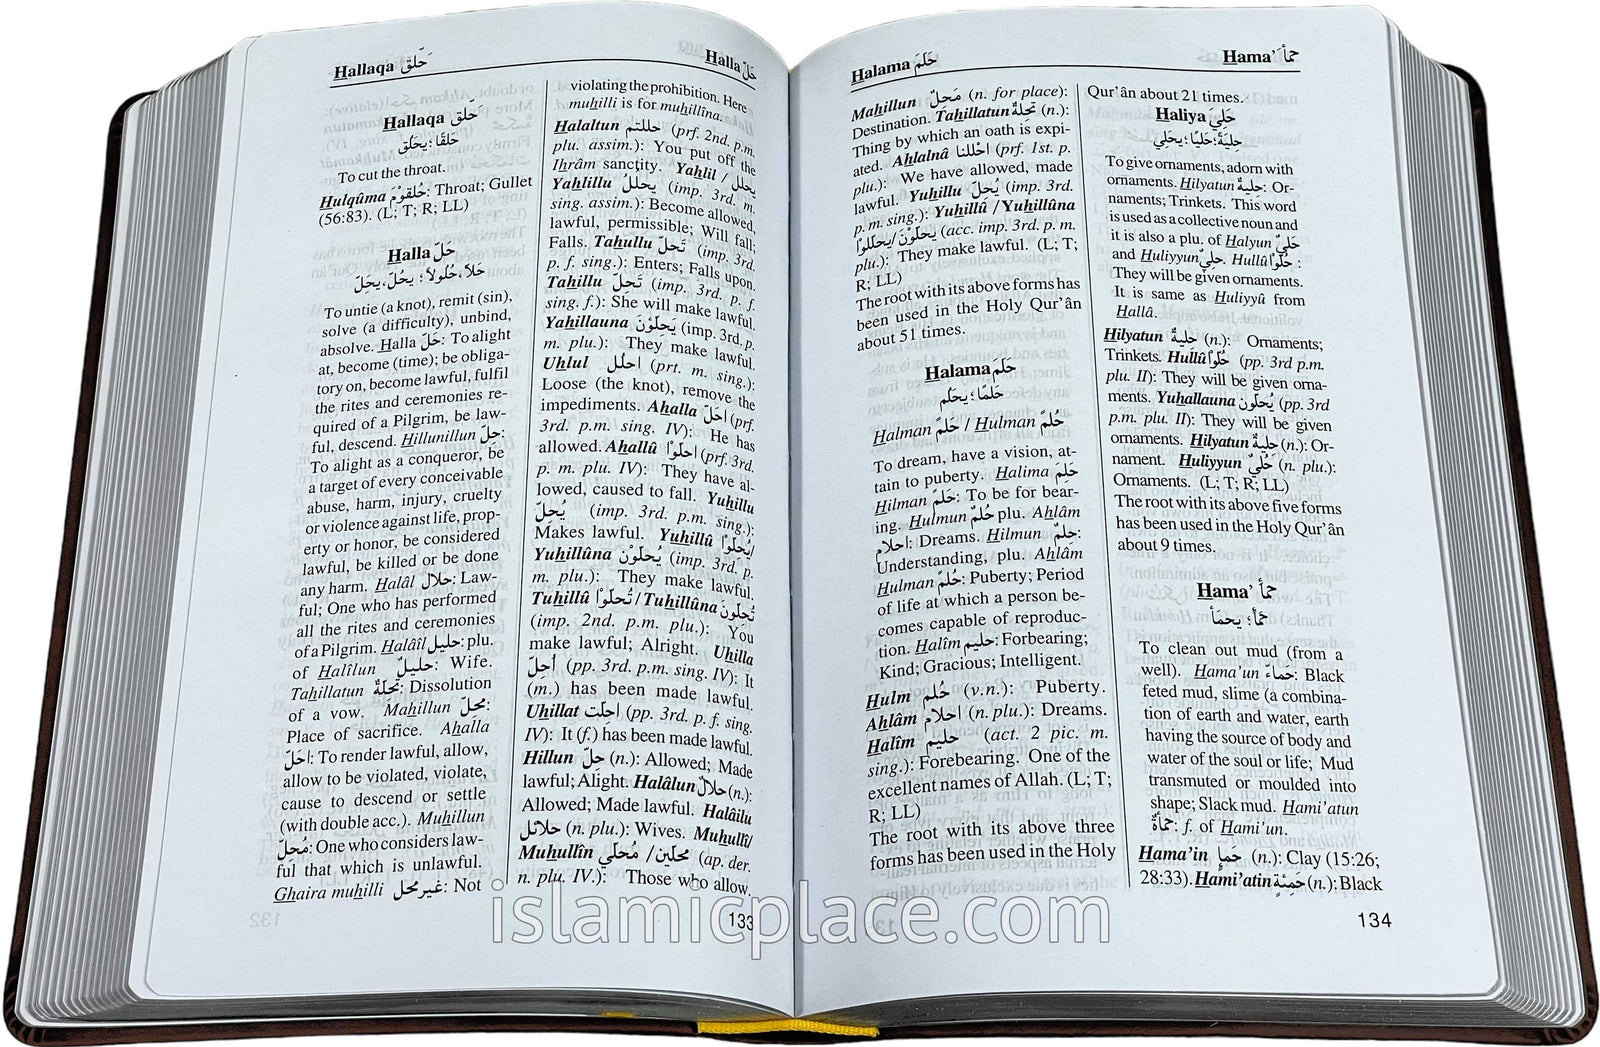 Hallaqa حَلَّق
Halla حَلَّ
Hallaqa حَلَّق
حَلقًا؛ يحَلّق
To cut the throat.
Hulqûma حُلقوْمَ: Throat; Gullet
(56:83). (L; T; R; LL)
Halla حَلَّ
حَلاً، حُلُولاً؛ يحُلّ، يحِلّ
To untie (a knot), remit (sin),
solve (a difficulty), unbind,
absolve. Halla حَلَّ: To alight
at, become (time); be obliga-
tory on, become lawful, fulfil
the rites and ceremonies re-
quired of a Pilgrim, be law-
ful, descend. Hillunillun حِلّ:
To alight as a conqueror, be
a target of every conceivable
abuse, harm, injury, cruelty
or violence against life, prop-
erty or honor, be considered
lawful, be killed or be done
any harm. Halâl حلال: Law-
ful; One who has performed
all the rites and ceremonies
of a Pilgrim. Halâîl حليل: plu.
of Halîlun حليلٌ: Wife.
Tahillatun تحِلّةٌ: Dissolution
of a vow. Mahillun محِلّ:
Place of sacrifice. Ahalla
احَلّ: To render lawful, allow,
allow to be violated, violate,
cause to descend or settle
(with double acc.). Muhillun
مُحِلّ: One who considers law-
ful that which is unlawful.
Ghaira muhilli غير محل: Not
violating the prohibition. Here
muhilli is for muhillîna.
Halaltun حللتم (prf. 2nd. p.m.
plu. assim.): You put off the
Ihrâm sanctity. Yahlil / يحلل
Yahlillu يحللُ (imp. 3rd. m.
sing. assim.): Become allowed,
lawful, permissible; Will fall;
Falls. Tahullu تَحلّ (imp. 3rd.
p. f. sing.): Enters; Falls upon.
Tahillu تَحلّ (imp. 3rd. p. f.
sing. f.): She will make lawful.
Yahillauna يَحِلّوْنَ (imp. 3rd. p.
m. plu.): They make lawful.
Uhlul احلُل (prt. m. sing.):
Loose (the knot), remove the
impediments. Ahalla احَلّ (prf.
3rd. p.m. sing. IV): He has
allowed. Ahallû احلّوْا (prf. 3rd.
p. m. plu. IV): They have al-
lowed, caused to fall. Yuhillu
يُحِلّ (imp. 3rd. p.m. sing.):
Makes lawful. Yuhillû يُحلّوْا/
Yuhillûna يُحلّوْن (imp. 3rd. p.
m. plu.): They make lawful.
Tuhillû تُحلّوْا / Tuhillûna تُحلّونَ
(imp. 2nd. p.m. plu.): You
make lawful; Alright. Uhilla
أحِلّ (pp. 3rd. p.m. sing. IV): It
(m.) has been made lawful.
Uhillat احِلّت (pp. 3rd. p. f. sing.
IV): It (f.) has been made lawful.
Hillun حِلّ (n.): Allowed; Made
lawful; Alight. Halâlun حلالٌ (n.):
Allowed; Made lawful. Halâilu
حلائل (n. plu.): Wives. Muhullî/
Muhullîn محلّين/ مُحلّي (ap. der.
n. plu. IV.): Those who allow.
133
Halama حَلَمَ
Hama' حمأَ
Mahillun مَحِلّ (n. for place):
Destination. Tahillatun تحلةٌ (n.):
Thing by which an oath is expi-
ated. Ahlalnâ احْللنا (prf. 1st. p.
plu.): We have allowed, made
lawful. Yuhillu يُحِلّ (imp. 3rd.
p. m. sing.): Yuhillû / Yuhillûna
يحلّوْنَ/يحللوْا (acc. imp. 3rd. p. m.
plu.): They make lawful. (L; T;
R; LL)
The root with its above forms has
been used in the Holy Qur'ân
about 51 times.
Halama حَلَمَ
حَلمًا؛ يحَلُم
Halman حَلمًّ / Hulman حُلمًّ
To dream, have a vision, at-
tain to puberty. Halima حَلِمَ
Hilman حَلمًّ: To be for bear-
ing. Hulmun حُلمٌ plu. Ahlâm
احلام: Dreams. Hilmun حلمٌ:
Understanding, plu. Ahlâm
Hulman حُلمًّ: Puberty; Period
of life at which a person be-
comes capable of reproduc-
tion. Halîm حليم: Forbearing;
Kind; Gracious; Intelligent.
Hulm حُلم (v.n.): Puberty.
Ahlâm احلام (n. plu.): Dreams.
Halîm حليم (act. 2 pic. m.
sing.): Forebearing. One of the
excellent names of Allah. (L; T;
R; LL)
The root with its above three
forms has been used in the Holy
Qur'ân about 21 times.
Haliya حَلِيَ
حِليَةً؛حَليًا؛ يحَلي
To give ornaments, adorn with
ornaments. Hilyatun حليةٌ: Or-
naments; Trinkets. This word
is used as a collective noun and
it is also a plu. of Halyun حَليٌ
and Huliyyun حليٌ. Hullû حُلّوْا:
They will be given ornaments.
It is same as Huliyyû from
Hallâ.
Hilyatun حليةٌ (n.): Ornaments;
Trinkets. Hullû حُلّوْا (pp. 3rd p.m.
plu. II): They will be given orna-
ments. Yuhallauna يُحلّون (pp. 3rd
p.m. plu. II): They will be given
ornaments. Hilyatun حليةٌ (n.): Or-
nament. Huliyyun حُليٌّ (n. plu.):
Ornaments. (L; T; R; LL)
The root with its above five forms
has been used in the Holy Qur'ân
about 9 times.
Hama' حمأَ
حمَأَ؛ يحمَأ
To clean out mud (from a
well). Hama'un حماءّ: Black
feted mud, slime (a combina-
tion of earth and water, earth
having the source of body and
water of the soul or life; Mud
transmuted or moulded into
shape; Slack mud. Hami'atun
حمأةٌ: f. of Hami'un.
Hama'in حمإٍ (n.): Clay (15:26;
28:33). Hami'atin حَمِئةٍ (n.): Black
134
islamicplace.com